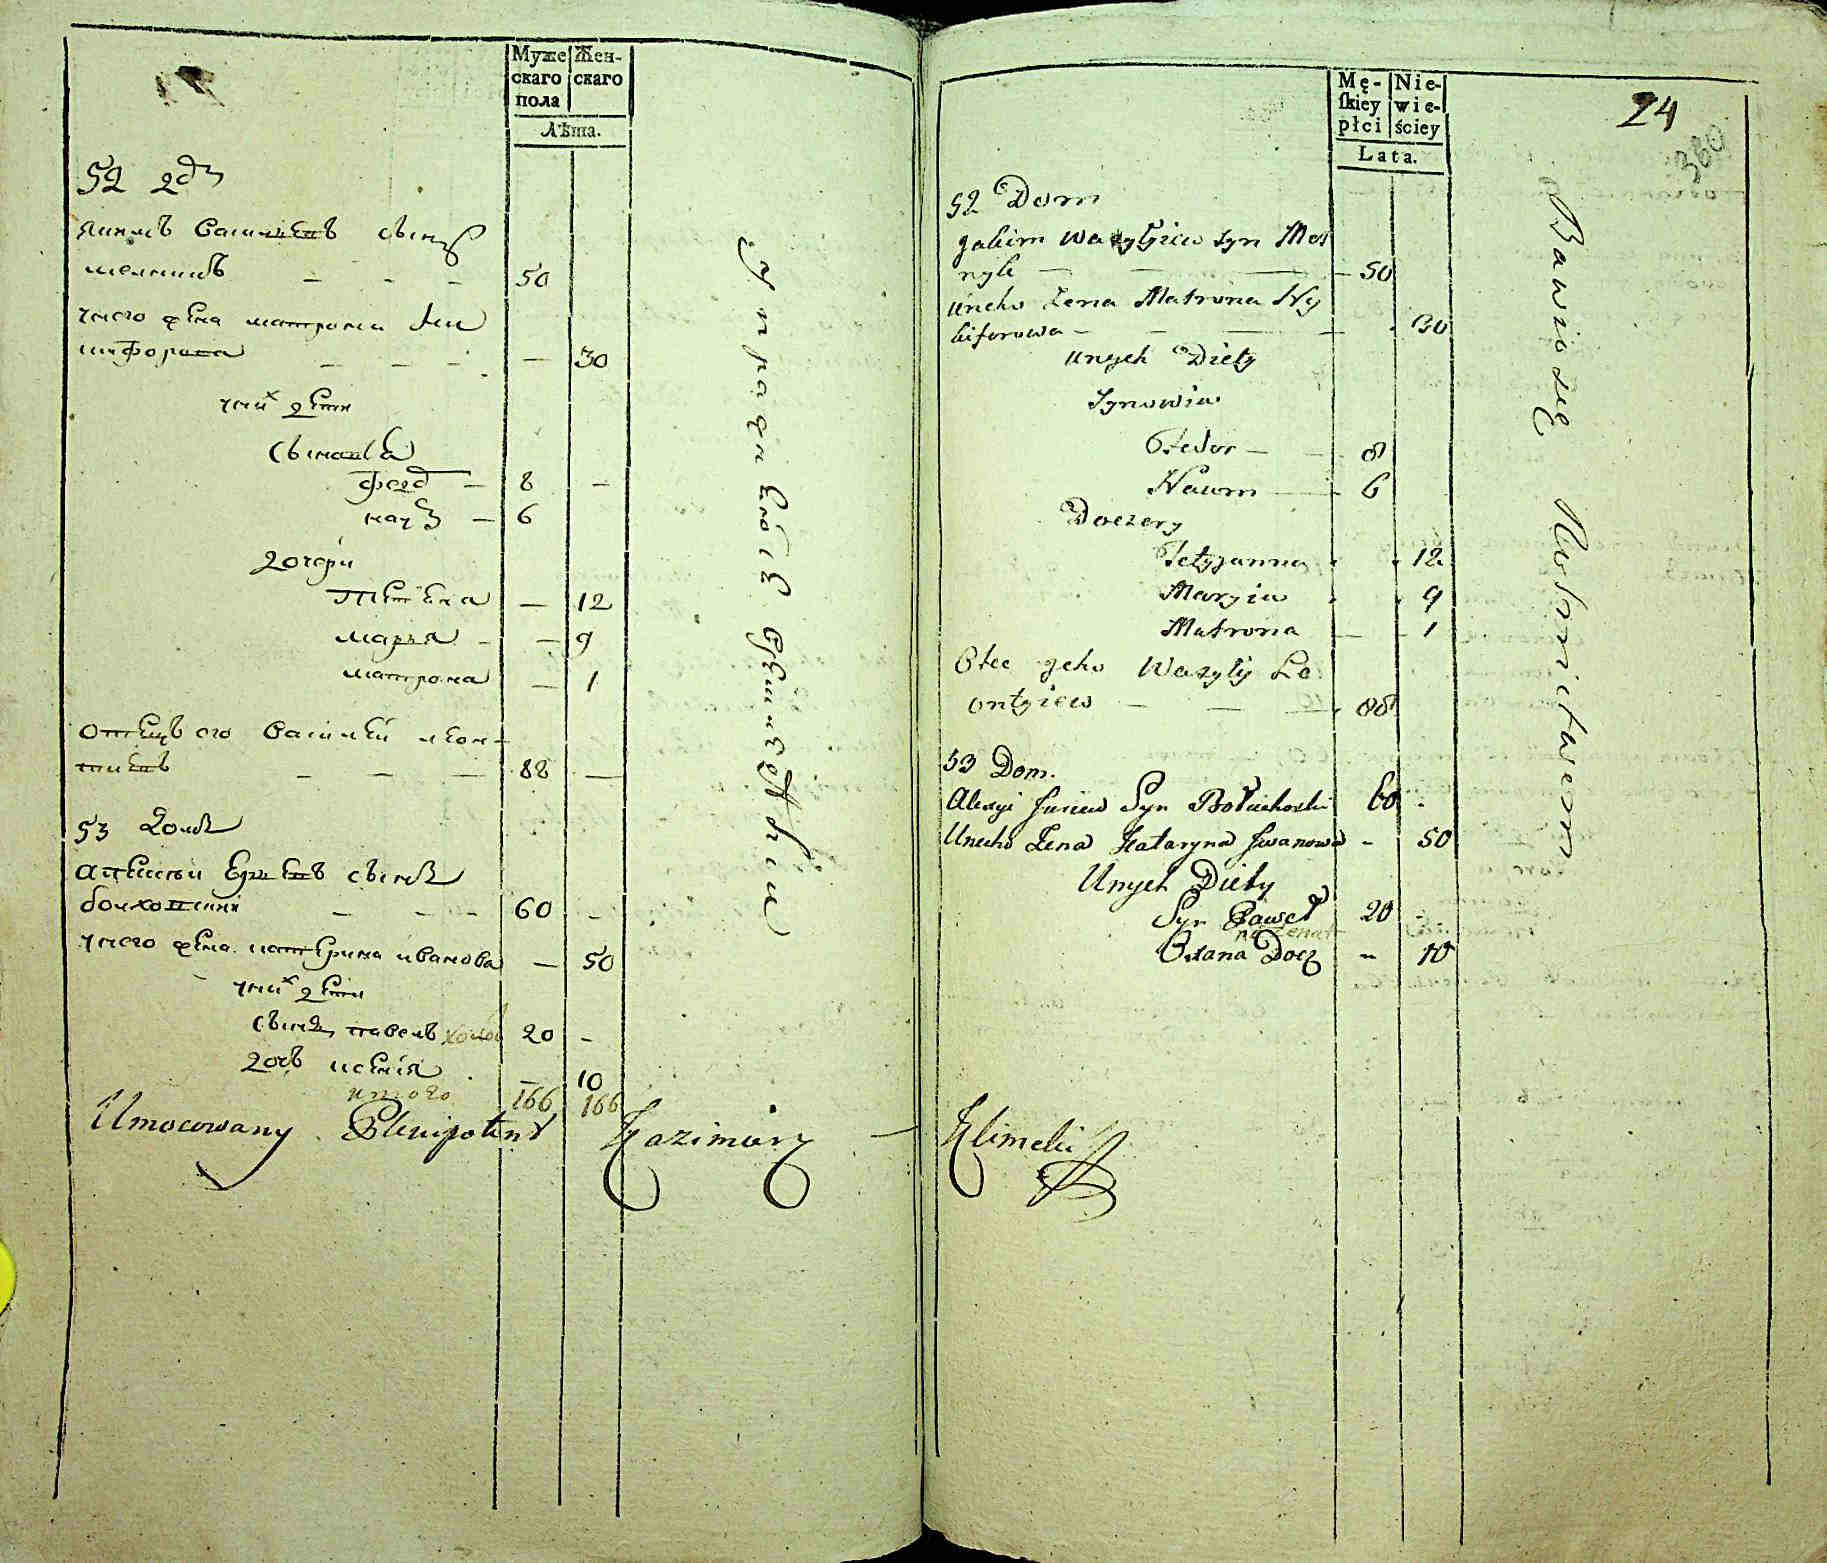 Муже
скаго
пола
Жен-
скаго
Лѣта.
52
якимъ Василиевъ сынъ
мелникъ — — — 50
унего жена матрона Ни
кифорова — — — — 30
уних дети
сыновя
федо — 8 —
наум — 6
дочери
Тетяна — 12
марья — — 9
матрона — 1
отецъ его Василей леон-
тиевъ — — — 88 —
53 домъ
алексей сынъ
60 —
унего жена катерина иванова — 50
уних дети
сынъ павелъ холост 20 -
дочъ — 10
итого 166 166
Umocowany Plenipotent Kazimierz — Klimcki
Упражняются земледелием
Mę-
ſkiey
płci
Nie-
wie-
ściey
Lata.
24
380
52 Dom
Jakim Wasylyiew Syn Mel
nyk — — — 50
Uneho Żena Matrona Ny
kiforowa — — — — 30
unych Diety
Synowia
Fedor — - 8
Naum — 6
Doczery
Tetyjanna - - 12
Maryia - - 9
Matrona — - 1
Otec jeho Wasyly Le
ontyiew — — — 88
53 Dom.
Alexyi Juriew Syn 60 -
Uneho Żena Kataryna Iwanowa - 50
Unych Diety
Syn Paweł 20 -
nieżenat
Oxana Docz - 10
Bawio się Rolnictwem